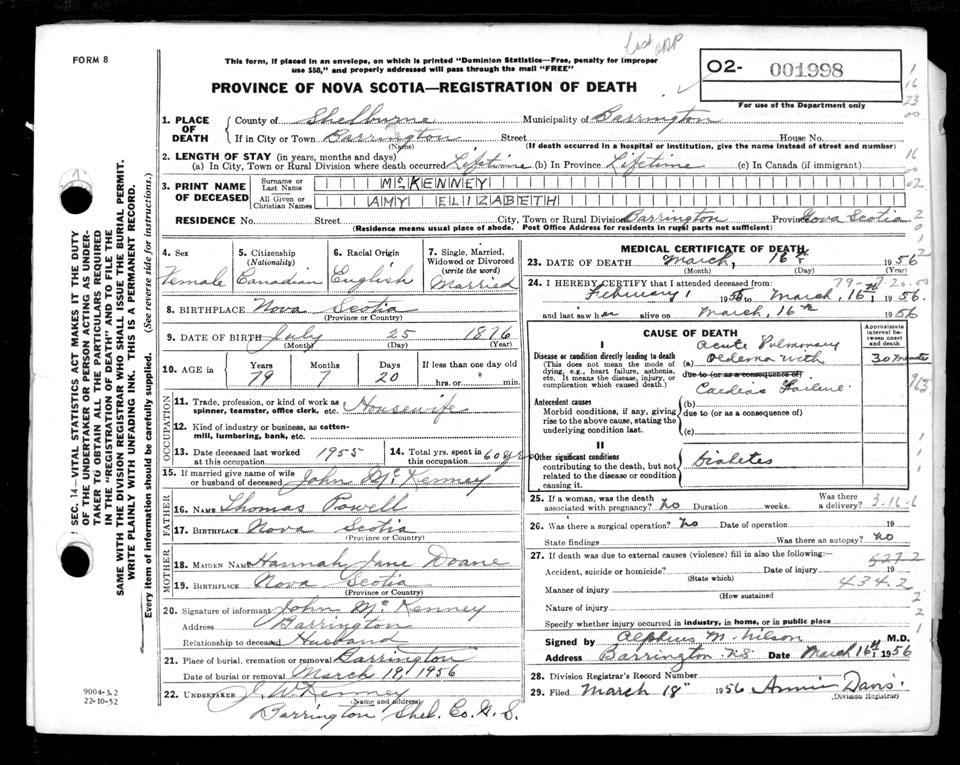 FORM 8
This form, if placed in an envelope, on which is printed "Dominion Statistics—Free, penalty for improper
use $50," and properly addressed will pass through the mail "FREE"
PROVINCE OF NOVA SCOTIA—REGISTRATION OF DEATH
O2- 001998
For use of the Department only
SEC. 14—VITAL STATISTICS ACT MAKES IT THE DUTY
OF THE UNDERTAKER OR PERSON ACTING AS UNDER-
TAKER TO OBTAIN ALL THE PARTICULARS REQUIRED
IN THE "REGISTRATION OF DEATH" AND TO FILE THE
SAME WITH THE DIVISION REGISTRAR WHO SHALL ISSUE THE BURIAL PERMIT.
WRITE PLAINLY WITH UNFADING INK. THIS IS A PERMANENT RECORD.
Every item of information should be carefully supplied. (See reverse side for instructions.)
1. PLACE OF DEATH County of Shelburne Municipality of Barrington
If in City or Town Barrington Street House No.
(Name) (If death occurred in a hospital or institution, give the name instead of street and number)
2. LENGTH OF STAY (in years, months and days)
(a) In City, Town or Rural Division where death occurred Lifetime (b) In Province Lifetime (c) In Canada (if immigrant)
3. PRINT NAME OF DECEASED Surname or Last Name McKENNEY
All Given or Christian Names AMY ELIZABETH
RESIDENCE No. Street City, Town or Rural Division Barrington Province Nova Scotia
(Residence means usual place of abode. Post Office Address for residents of rural parts not sufficient)
4. Sex Female
5. Citizenship (Nationality) Canadian
6. Racial Origin English
7. Single, Married, Widowed or Divorced (write the word) Married
8. BIRTHPLACE Nova Scotia
(Province or Country)
9. DATE OF BIRTH July 25 1876
(Month) (Day) (Year)
10. AGE in Years 79 Months 7 Days 20 If less than one day old
hrs. or min.
OCCUPATION
11. Trade, profession, or kind of work as spinner, teamster, office clerk, etc. Housewife
12. Kind of industry or business, as cotton-mill, lumbering, bank, etc.
13. Date deceased last worked at this occupation 1955
14. Total yrs. spent in this occupation 60 yrs
15. If married give name of wife or husband of deceased John McKenney
FATHER
16. NAME Thomas Powell
17. BIRTHPLACE Nova Scotia
(Province or Country)
MOTHER
18. MAIDEN NAME Hannah Jane Doane
19. BIRTHPLACE Nova Scotia
(Province or Country)
20. Signature of informant John McKenney
Address Barrington
Relationship to deceased Husband
21. Place of burial, cremation or removal Barrington
Date of burial or removal March 19, 1956
22. UNDERTAKER J. W. Kenney
(Name and address)
Barrington Shel. Co. N. S.
9004-3.2
22-10-52
MEDICAL CERTIFICATE OF DEATH
23. DATE OF DEATH March, 16th 1956
(Month) (Day) (Year)
24. I HEREBY CERTIFY that I attended deceased from: 79-7-20.00
February, 1956 to March, 16th, 1956.
and last saw her alive on March, 16th 1956
CAUSE OF DEATH
Approximate interval between onset and death
I
Disease or condition directly leading to death
(This does not mean the mode of dying, e.g., heart failure, asthenia, etc. It means the disease, injury, or complication which caused death.)
(a) Acute Pulmonary Oedema with 30 minutes
due to (or as a consequence of)
Cardiac Failure.
Antecedent causes
Morbid conditions, if any, giving rise to the above cause, stating the underlying condition last.
(b)
due to (or as a consequence of)
(c)
II
Other significant conditions
contributing to the death, but not related to the disease or condition causing it.
Diabetes
25. If a woman, was the death associated with pregnancy? No Duration weeks. Was there a delivery? 3-16-6
26. Was there a surgical operation? No Date of operation 19
State findings Was there an autopsy? No
27. If death was due to external causes (violence) fill in also the following:—
5272
Accident, suicide or homicide? Date of injury 19
(State which)
434.2
Manner of injury
(How sustained
Nature of injury
Specify whether injury occurred in industry, in home, or in public place
Signed by Alpheus M. Wilson M.D.
Address Barrington NS Date March 16th, 1956
28. Division Registrar's Record Number
29. Filed March 18" 1956 Annie Davis
(Division Registrar)